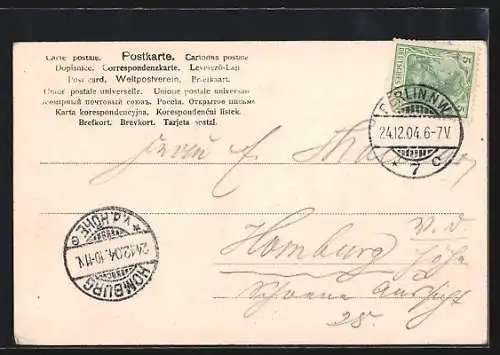 Carte postale. Postkarte. Cartolina postale
Dopisnice. Correspondenzkarte. Levelező-Lap
Post card. Weltpostverein. Brefkaart.
Union postale universelle. Unione postale universale
Всемирный почтовый союзъ. Россія. Открытое письмо
Karta korespondencyjna. Korespondenční lístek.
Brefkort. Brevkort. Tarjeta postal.
5
5
BERLIN N.W.
24.12.04. 6-7V.
* 7 c
HOMBURG
24.12.04. 10-11V.
* v.d. HÖHE e
Homburg v. d.
Höhe
Schoene Aussicht
25.